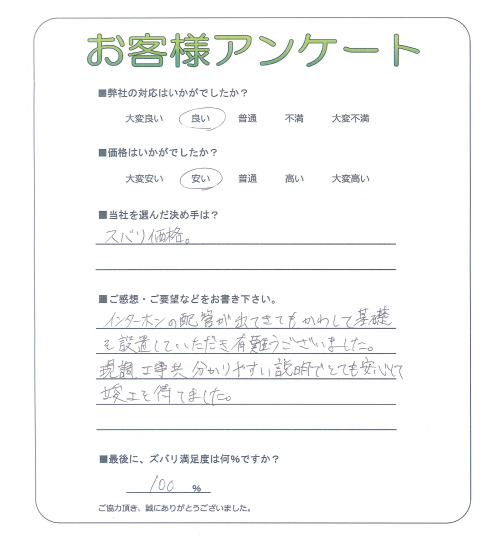 お客様アンケート
■弊社の対応はいかがでしたか？
大変良い 良い 普通 不満 大変不満
■価格はいかがでしたか？
大変安い 安い 普通 高い 大変高い
■当社を選んだ決め手は？
ズバリ価格。
■ご感想・ご要望などをお書き下さい。
インターホンの配管が出てきてもかわして基礎
を設置していただき有難うございました。
現調、工事共分かりやすい説明でとても安心して
竣工を待てました。
■最後に、ズバリ満足度は何%ですか？
100 %
ご協力頂き、誠にありがとうございました。